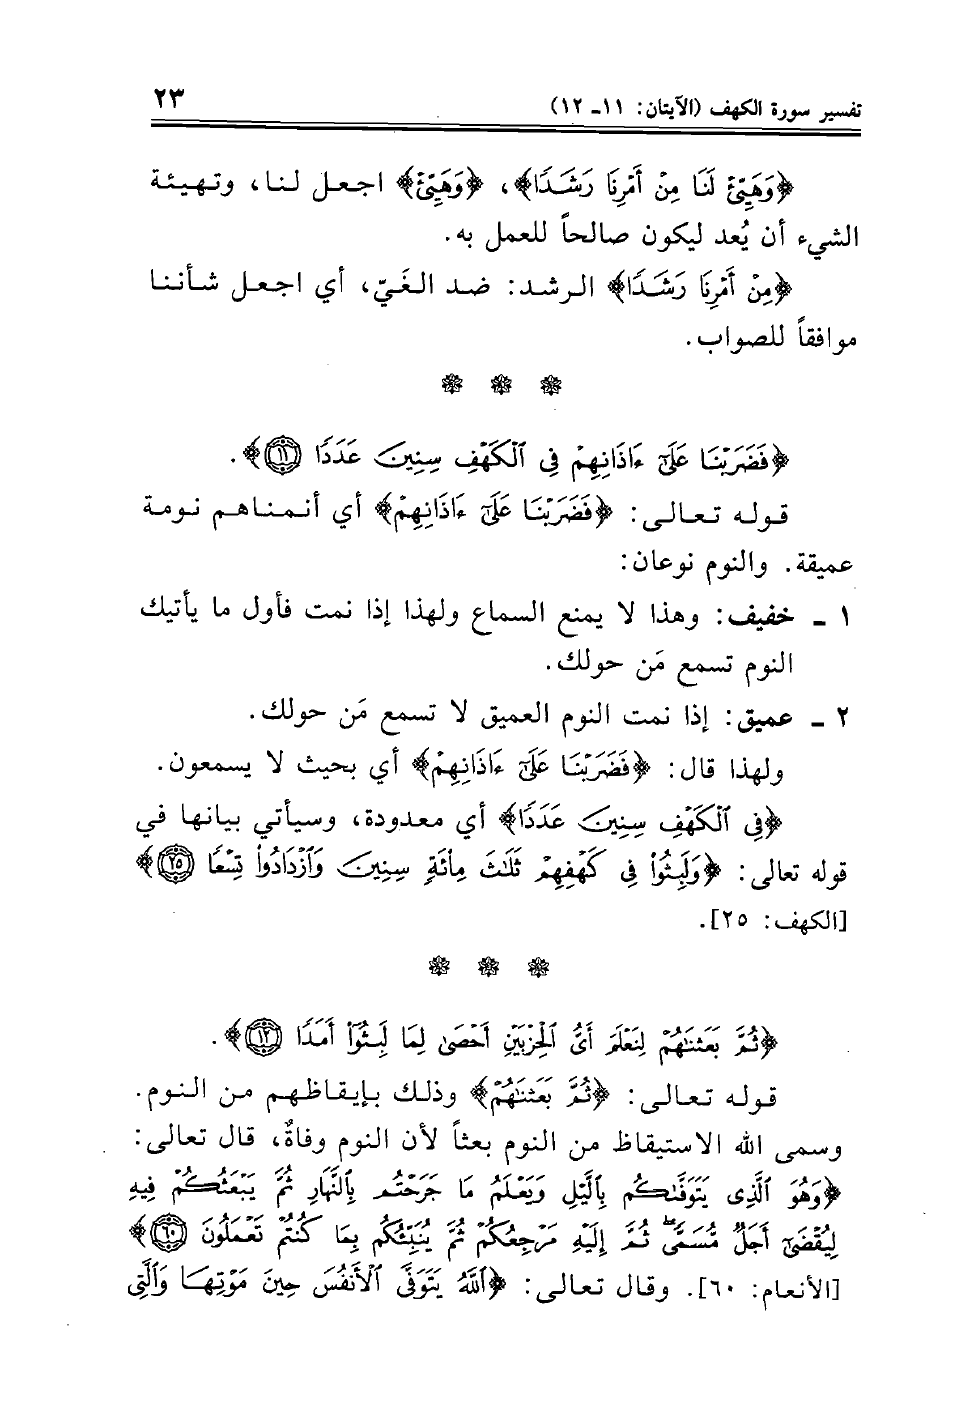 تفسير سورة الكهف (الآيتان: ١١- ١٢) ٢٣
﴿وَهَيِّئْ لَنَا مِنْ أَمْرِنَا رَشَدًا﴾، ﴿وَهَيِّئْ﴾ اجعل لنا، وتهيئة
الشيء أن يُعد ليكون صالحاً للعمل به.
﴿مِنْ أَمْرِنَا رَشَدًا﴾ الرشد: ضد الغَيّ، أي اجعل شأننا
موافقاً للصواب.
﴿فَضَرَبْنَا عَلَىٰٓ ءَاذَانِهِمْ فِي ٱلْكَهْفِ سِنِينَ عَدَدًا ١١﴾.
قوله تعالى: ﴿فَضَرَبْنَا عَلَىٰٓ ءَاذَانِهِمْ﴾ أي أنمناهم نومة
عميقة. والنوم نوعان:
١ ـ خفيف: وهذا لا يمنع السماع ولهذا إذا نمت فأول ما يأتيك
النوم تسمع مَن حولك.
٢ ـ عميق: إذا نمت النوم العميق لا تسمع مَن حولك.
ولهذا قال: ﴿فَضَرَبْنَا عَلَىٰٓ ءَاذَانِهِمْ﴾ أي بحيث لا يسمعون.
﴿فِي ٱلْكَهْفِ سِنِينَ عَدَدًا﴾ أي معدودة، وسيأتي بيانها في
قوله تعالى: ﴿وَلَبِثُوا۟ فِي كَهْفِهِمْ ثَلَـٰثَ مِا۟ئَةٍ سِنِينَ وَٱزْدَادُوا۟ تِسْعًا ٢٥﴾
[الكهف: ٢٥].
﴿ثُمَّ بَعَثْنَـٰهُمْ لِنَعْلَمَ أَيُّ ٱلْحِزْبَيْنِ أَحْصَىٰ لِمَا لَبِثُوٓا۟ أَمَدًا ١٢﴾.
قوله تعالى: ﴿ثُمَّ بَعَثْنَـٰهُمْ﴾ وذلك بإيقاظهم من النوم.
وسمى الله الاستيقاظ من النوم بعثاً لأن النوم وفاةٌ، قال تعالى:
﴿وَهُوَ ٱلَّذِي يَتَوَفَّىٰكُم بِٱلَّيْلِ وَيَعْلَمُ مَا جَرَحْتُم بِٱلنَّهَارِ ثُمَّ يَبْعَثُكُمْ فِيهِ
لِيُقْضَىٰٓ أَجَلٌ مُّسَمًّى ۖ ثُمَّ إِلَيْهِ مَرْجِعُكُمْ ثُمَّ يُنَبِّئُكُم بِمَا كُنتُمْ تَعْمَلُونَ ٦٠﴾
[الأنعام: ٦٠]. وقال تعالى: ﴿ٱللَّهُ يَتَوَفَّى ٱلْأَنفُسَ حِينَ مَوْتِهَا وَٱلَّتِي